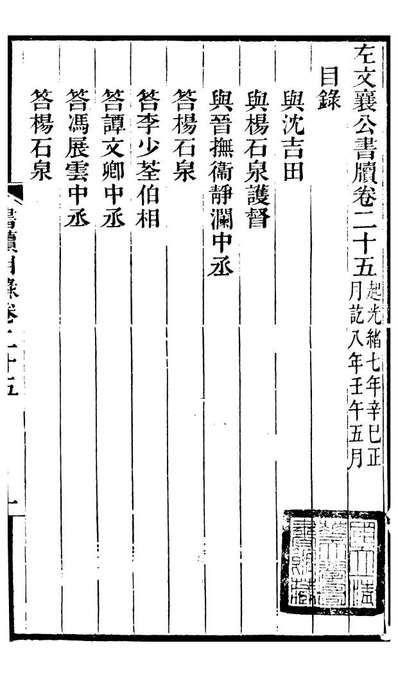 左文襄公書牘卷二十五 起光緒七年辛巳正
月訖八年壬午五月
目錄
與沈吉田
與楊石泉護督
與晉撫衞靜瀾中丞
荅楊石泉
荅李少荃伯相
荅譚文卿中丞
荅馮展雲中丞
荅楊石泉
書牘目錄卷二十五
一